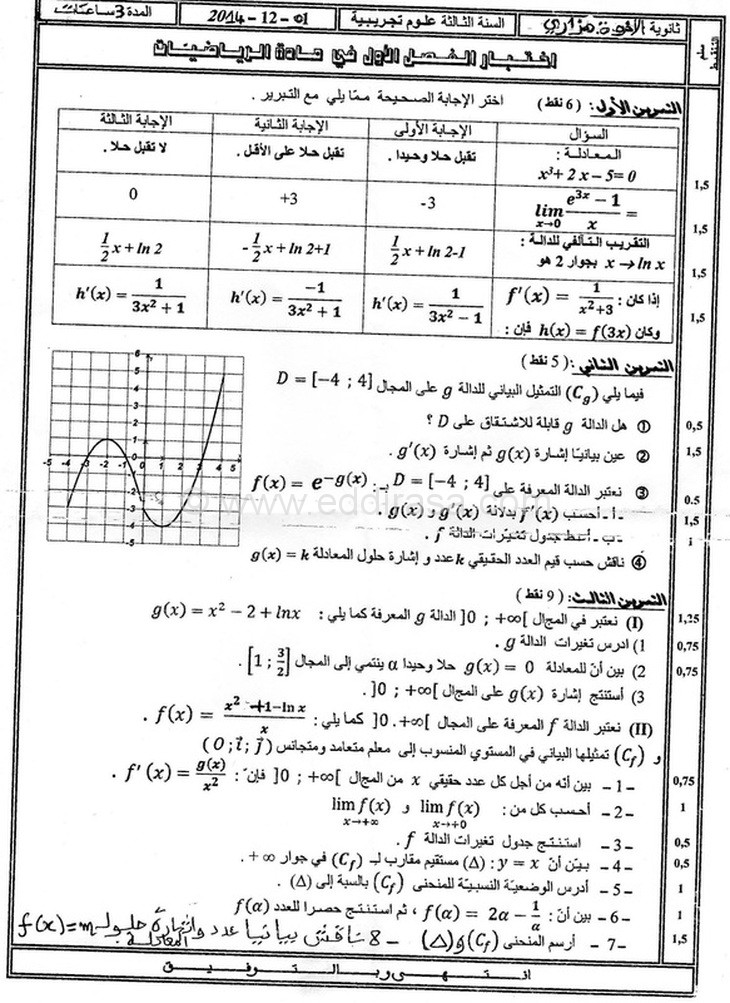 ثانوية الاخوة هزاري السنة الثالثة علوم تجريبية 01-12-2014 المدة 3 ساعات
اختبار الفصل الأول في مادة الرياضيات
التمرين الأول: (6 نقط) اختر الإجابة الصحيحة ممّا يلي مع التبرير .
السؤال الإجابة الأولى الإجابة الثانية الإجابة الثالثة
المعادلة : x³+ 2 x – 5= 0 تقبل حلا وحيدا . تقبل حلا على الأقل . لا تقبل حلا . 1,5
lim x→0 (e^{3x} − 1)/x = -3 +3 0 1,5
التقريب التآلفي للدالة : x → ln x بجوار 2 هو 1/2 x + ln 2-1 -1/2 x + ln 2+1 1/2 x + ln 2 1,5
إذا كان : f′(x) = 1/(x²+3) وكان h(x) = f(3x) فإن : h′(x) = 1/(3x² − 1) h′(x) = −1/(3x² + 1) h′(x) = 1/(3x² + 1) 1,5
التمرين الثاني :( 5 نقط )
فيما يلي (Cg) التمثيل البياني للدالة g على المجال D = [−4 ; 4]
① هل الدالة g قابلة للاشتقاق على D ؟ 0,5
② عين بيانيّا إشارة g(x) ثم إشارة g′(x) . 1,5
③ نعتبر الدالة المعرفة على D = [−4 ; 4] بـ: f(x) = e^{−g(x)} 0.5
- أ - أحسب f′(x) بدلالة g′(x) و g(x) . 1,5
- ب - أعط جدول تغيّرات الدالة f . 1
④ ناقش حسب قيم العدد الحقيقي k عدد و إشارة حلول المعادلة g(x) = k
-5 -4 -3 -2 -1 0 1 2 3 4 5
6 5 4 3 2 1 0 -1 -2 -3 -4 -5
© www.eddirasa.com
التمرين الثالث: ( 9 نقط )
(I) نعتبر في المجال ]0 ; +∞[ الدالة g المعرفة كما يلي : g(x) = x² − 2 + lnx 1,25
1) ادرس تغيرات الدالة g . 0,75
2) بين أنّ للمعادلة g(x) = 0 حلا وحيدا α ينتمي إلى المجال [1 ; 3/2] . 0,75
3) أستنتج إشارة g(x) على المجال ]0 ; +∞[ .
(II) نعتبر الدالة f المعرفة على المجال ]0 . +∞[ كما يلي : f(x) = (x² +1−ln x)/x .
و (Cf) تمثيلها البياني في المستوي المنسوب إلى معلم متعامد ومتجانس (O ; i ; j)
-1 - بين أنه من أجل كل عدد حقيقي x من المجال ]0 ; +∞[ فإنّ : f′(x) = g(x)/x² . 0,75
-2 - أحسب كل من : lim f(x) x→+0 و lim f(x) x→+∞ 1
-3 - استنتج جدول تغيرات الدالة f . 0,5
-4 - بيّن أنّ (Δ) : y = x مستقيم مقارب لـ (Cf) في جوار +∞ . 0,5
-5 - أدرس الوضعيّة النسبيّة للمنحنى (Cf) بالسبة إلى (Δ) . 1
-6 - بين أنّ : f(α) = 2α − 1/α ، ثم استنتج حصرا للعدد f(α) 1
-7 - أرسم المنحنى (Cf) و (Δ) - 8 ناقش بيانيا عدد وإشارة حلول المعادلة f(x)=m 1,5
انتهى وبالتوفيق